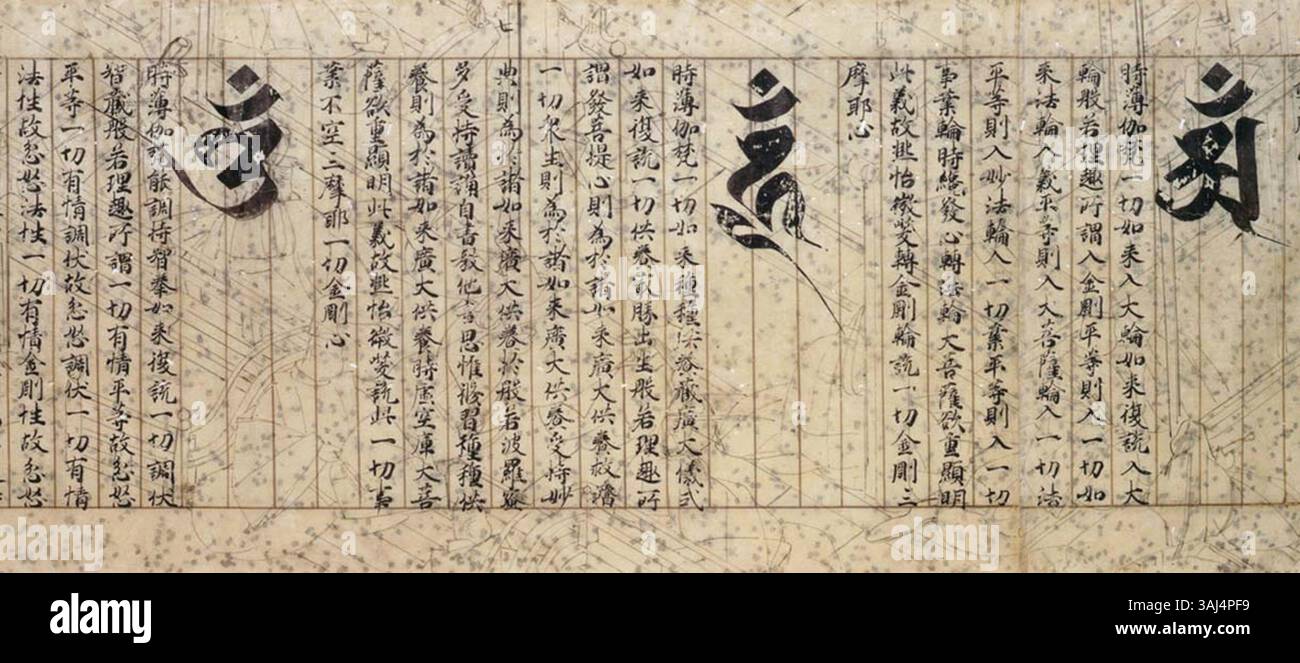 𑖀𑖽
時薄伽梵一切如来入大輪如来復說入大
輪般若理趣所謂入金剛平等則入一切如
来法輪入義平等則入大菩薩輪入一切法
平等則入妙法輪入一切業平等則入一切
事業輪時纔發心轉法輪大菩薩欲重顯明
此義故熙怡微咲轉金剛輪說一切金剛三
摩耶心
𑖮𑖳𑖽
時薄伽梵一切如来種種供養藏廣大儀式
如来復說一切供養最勝出生般若理趣所
謂發菩提心則為於諸如来廣大供養救濟
一切衆生則為於諸如来廣大供養受持妙
典則為於諸如来廣大供養於般若波羅蜜
多受持讀誦自書教他書思惟修習種種供
養則為於諸如来廣大供養時虛空庫大菩
薩欲重顯明此義故熙怡微咲說此一切事
業不空三摩耶一切金剛心
𑖌𑖼
時薄伽梵能調持智拳如来復說一切調伏
智藏般若理趣所謂一切有情平等故忿怒
平等一切有情調伏故忿怒調伏一切有情
法性故忿怒法性一切有情金剛性故忿怒
alamy
Image ID: 2AJ4PF9
www.alamy.com